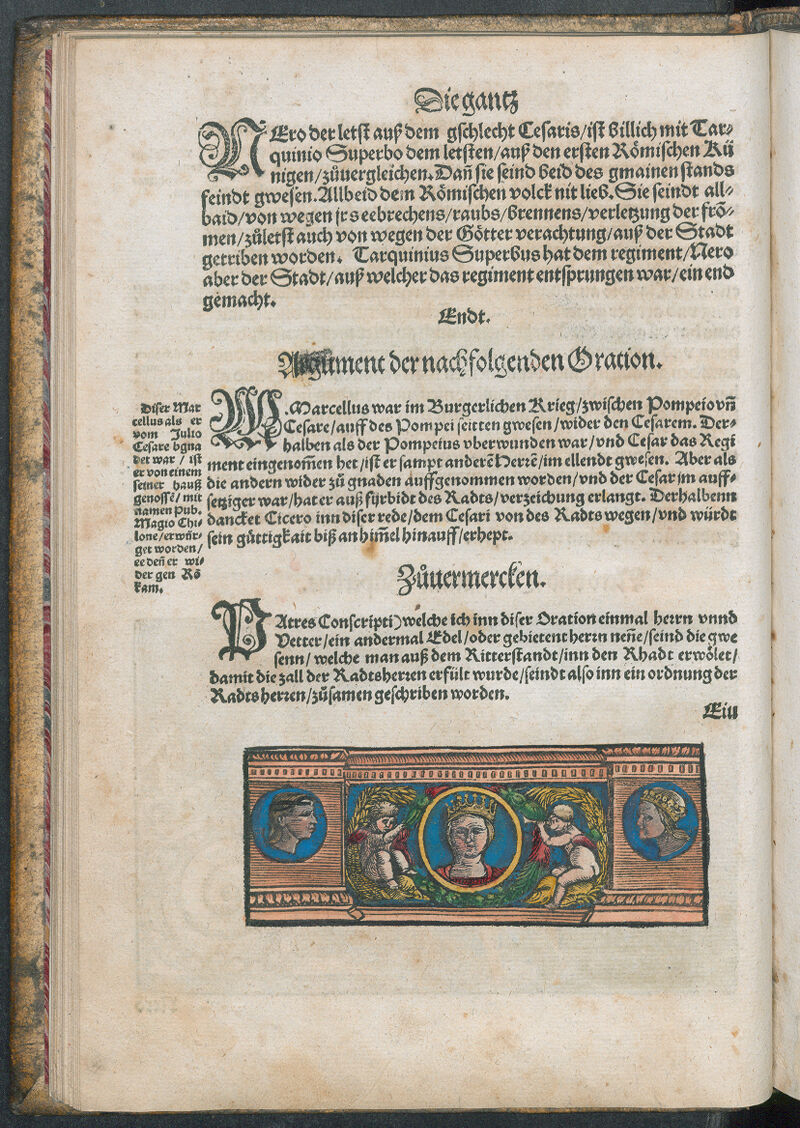 Die gantz
NEro der letst auß dem gschlecht Cesaris/ist billich mit Tar⸗
quinio Superbo dem letsten/auß den ersten Römischen Kü
nigen/zůuergleichen. Dañ sie seind beid des gmainen stands
feindt gwesen. Allbeid dem Römischen volck nit lieb. Sie seindt all⸗
baid/von wegen jrs eebrechens/raubs/brennens/verletzung der frö⸗
men/zůletst auch von wegen der Götter verachtung/auß der Stadt
getriben worden. Tarquinius Superbus hat dem regiment/Nero
aber der Stadt/auß welcher das regiment entsprungen war/ein end
gemacht.
Endt.
Argument der nachfolgenden Oration.
Diser Mar
cellus als er
vom Julio
Cesare bgna
det war / ist
er von einem
seiner hauß
genosse/ mit
namen Pub.
Magio Chi⸗
lone/erwür⸗
get worden/
ee deñ er wi⸗
der gen Rõ
kam.
M. Marcellus war im Burgerlichen Krieg/zwischen Pompeio vñ
Cesare/auff des Pompei seitten gwesen/wider den Cesarem. Der⸗
halben als der Pompeius vberwunden war/vnd Cesar das Regi
ment eingenom̃en het/ist er sampt anderẽ Herrẽ/im ellendt gwesen. Aber als
die andern wider zů gnaden auffgenommen worden/vnd der Cesar jm auff⸗
setziger war/hat er auß fürbidt des Radts/verzeichung erlangt. Derhalbenn
dancket Cicero inn diser rede/dem Cesari von des Radts wegen/vnd würdt
sein güttigkait biß an him̃el hinauff/erhept.
Zůuermercken.
PAtres Conscripti) welche ich inn diser Oration einmal herrn vnnd
Vetter/ein andermal Edel/oder gebietent herrn neñe/seind die gwe
senn/ welche man auß dem Ritterstandt/inn den Rhadt erwölet/
damit die zall der Radtsherren erfült wurde/seindt also inn ein ordnung der
Radtsherren/zůsamen geschriben worden.
Ein